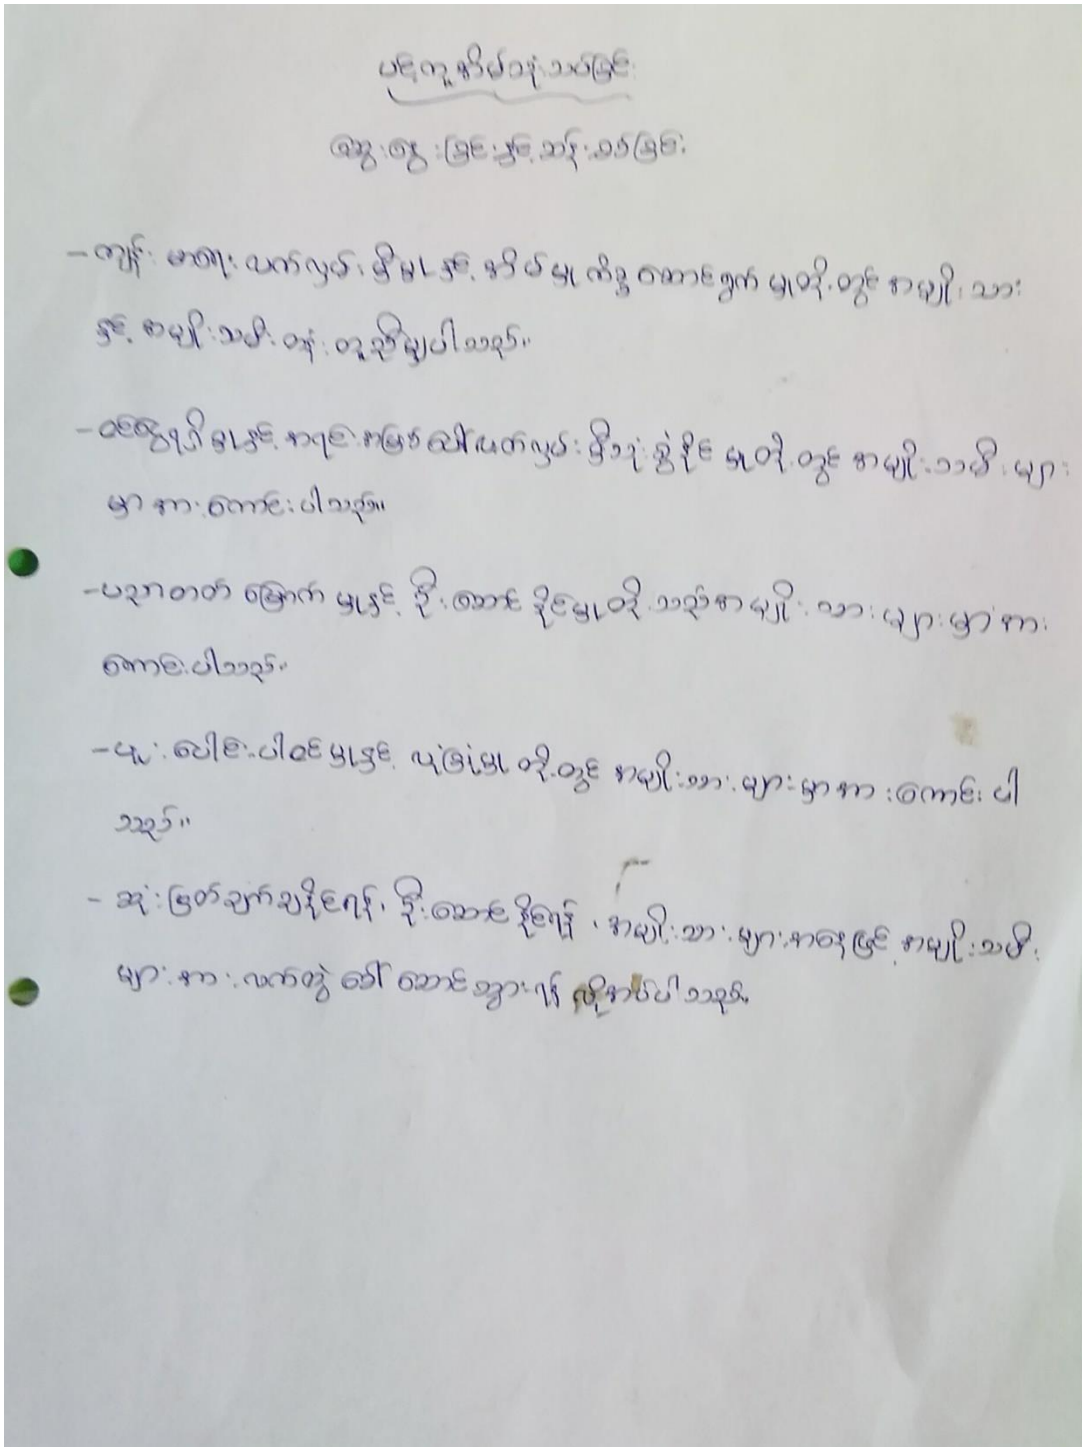 ပင့်ကူအိမ်သုံးသပ်ခြင်း
ဆွေးနွေးခြင်းနှင့်ဆန်းစစ်ခြင်း
- ကျန်းမာရေးလက်လှမ်းမှီမှုနှင့်အိမ်မှုကိစ္စဆောင်ရွက်မှုတို့တွင်အမျိုးသား
နှင့်အမျိုးသမီးတန်းတူညီမျှပါသည်။
- ဝင်ငွေရရှိမှုနှင့်အရင်းအမြစ်ပေါ်လက်လှမ်းမှီသုံးစွဲနိုင်မှုတို့တွင်အမျိုးသမီးများ
မှာအားကောင်းပါသည်။
- ပညာတတ်မြောက်မှုနှင့်ဦးဆောင်နိုင်မှုတို့သည်အမျိုးသားများမှာအား
ကောင်းပါသည်။
- ပူးပေါင်းပါဝင်မှုနှင့်လုံခြုံမှုတို့တွင်အမျိုးသားများမှာအားကောင်းပါ
သည်။
- ဆုံးဖြတ်ချက်ချနိုင်ရန်၊ ဦးဆောင်နိုင်ရန်၊ အမျိုးသားများအနေဖြင့်အမျိုးသမီး
များအားလက်တွဲခေါ်ဆောင်သွားရန်လိုအပ်ပါသည်။